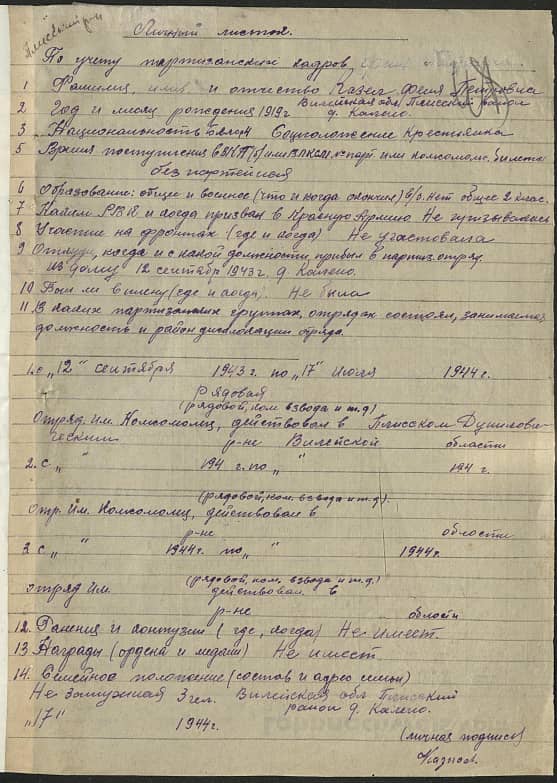 Плисский р-н
Личный листок.
По учету партизанских кадров
1 Фамилия, имя и отчество Казел Петровна
2 Год и месяц рождения 1919 г Вилейская обл Плисский район
д. Калено.
3 Национальность белор Соцположение Крестьянка
5 Время поступления в ВКП(б) или ВЛКСМ № парт. или комсомол. билета
беспартейная
6 Образование: общее и военное (что и когда окончил) в/о. нет общее 2 клас.
7 Каким РВК и когда призван в Красную Армию Не призывалась
8 Участие на фронтах (где и когда) Не участвовала
9 Откуда, когда и с какой должности прибыл в партиз. отряд.
из дому 12 сентябр 1943 г. д. Калено.
10 Был ли в плену (где и когда). Не была
11, В каких партизанских группах, отрядах состоял, занимаемая
должность и район дислокации отряда.
1. с „12" сентября 1943 г. по „17" Июля 1944 г.
Рядовая
(рядовой, ком. взвода и т.д)
Отряд им. Комсомолец, действовал в Плисском Дуниловичеческим
р-не Вилейской области
2. с „ " 194 г. по „ " 194 г.
(рядовой, ком. взвода и т.д).
Отр. им. Комсомолец, действовал в
р-не области
3. с „ " 1944 г. по „ " 1944 г.
(рядовой, ком. взвода и т.д.)
отряд им. действовал в
р-не области
12. Ранения и контузии (где, когда) Не имеет.
13 Награды (ордена и медали) Не имеет
14. Семейное положение (состав и адрес семьи)
Не замужная 3 чел. Вилейская обл Плисский
район д. Калено.
„17" 1944 г.
(личная подпись)